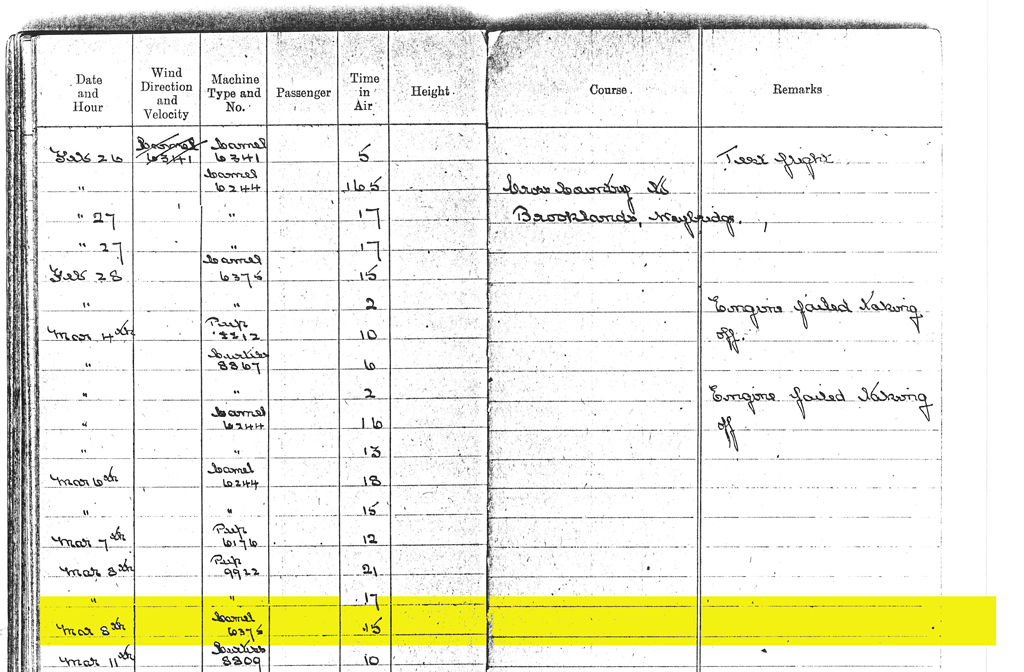 Date and Hour	Wind Direction and Velocity	Machine Type and No.	Passenger	Time in Air	Height	Course.	Remarks
Feb 26	Camel 6341	Camel 6341		5			Test flight
"		Camel 6244		165		Cross Country to
" 27		"		17		Brooklands, Weybridge.
" 27		"		17
Feb 28		Camel 6375		15
"		"		2			Engine failed taking
Mar 4th		Pup		10			off.
"		Curtiss 8367		6
"		"		2			Engine failed taking
"		Camel 6244		16			off
"		"		13
Mar 6th		Camel 6244		18
"		"		15
Mar 7th		Pup 6176		12
Mar 8th		Pup 9922		21
"		"		17
Mar 8th		Camel 6375		15
Mar 11th		Curtiss 8309		10